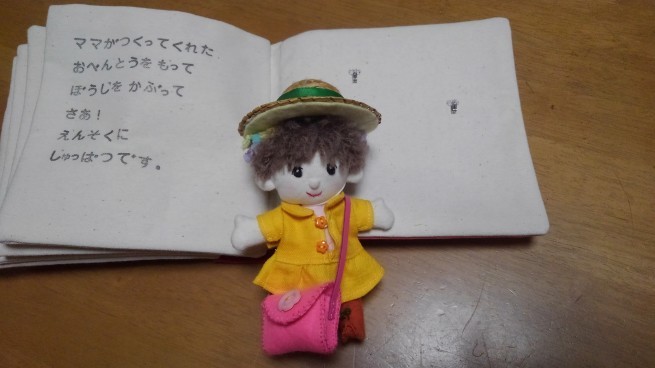 ママがつくってくれた
おべんとうを もって
ぼうしを かぶって
さあ!
えんそくに
しゅっぱつです。